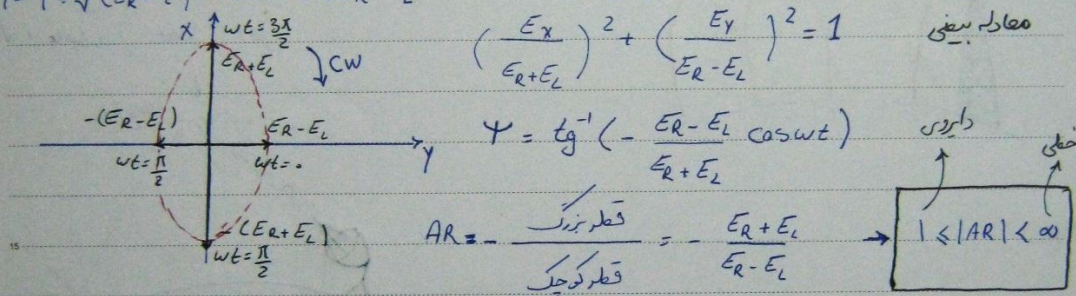 X
ωt = 3π/2
E_R+E_L
CW
-(E_R-E_L)
E_R-E_L
ωt = π/2
ωt = 0
Y
-(E_R+E_L)
ωt = π/2
15
(E_x / E_R+E_L)² + (E_y / E_R-E_L)² = 1
معادله بیضی
Ψ = tg⁻¹(- E_R-E_L / E_R+E_L cosωt)
دایروی
خطی
AR = - قطر بزرگ / قطر کوچک = - E_R+E_L / E_R-E_L → 1 ≤ |AR| < ∞